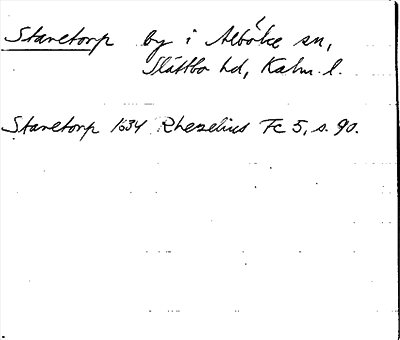 Stavetorp by i Alböke sn,
Slättbo hd, Kalm. l.
Stavetorp 1634 Rhezelius Fc 5, s. 90.